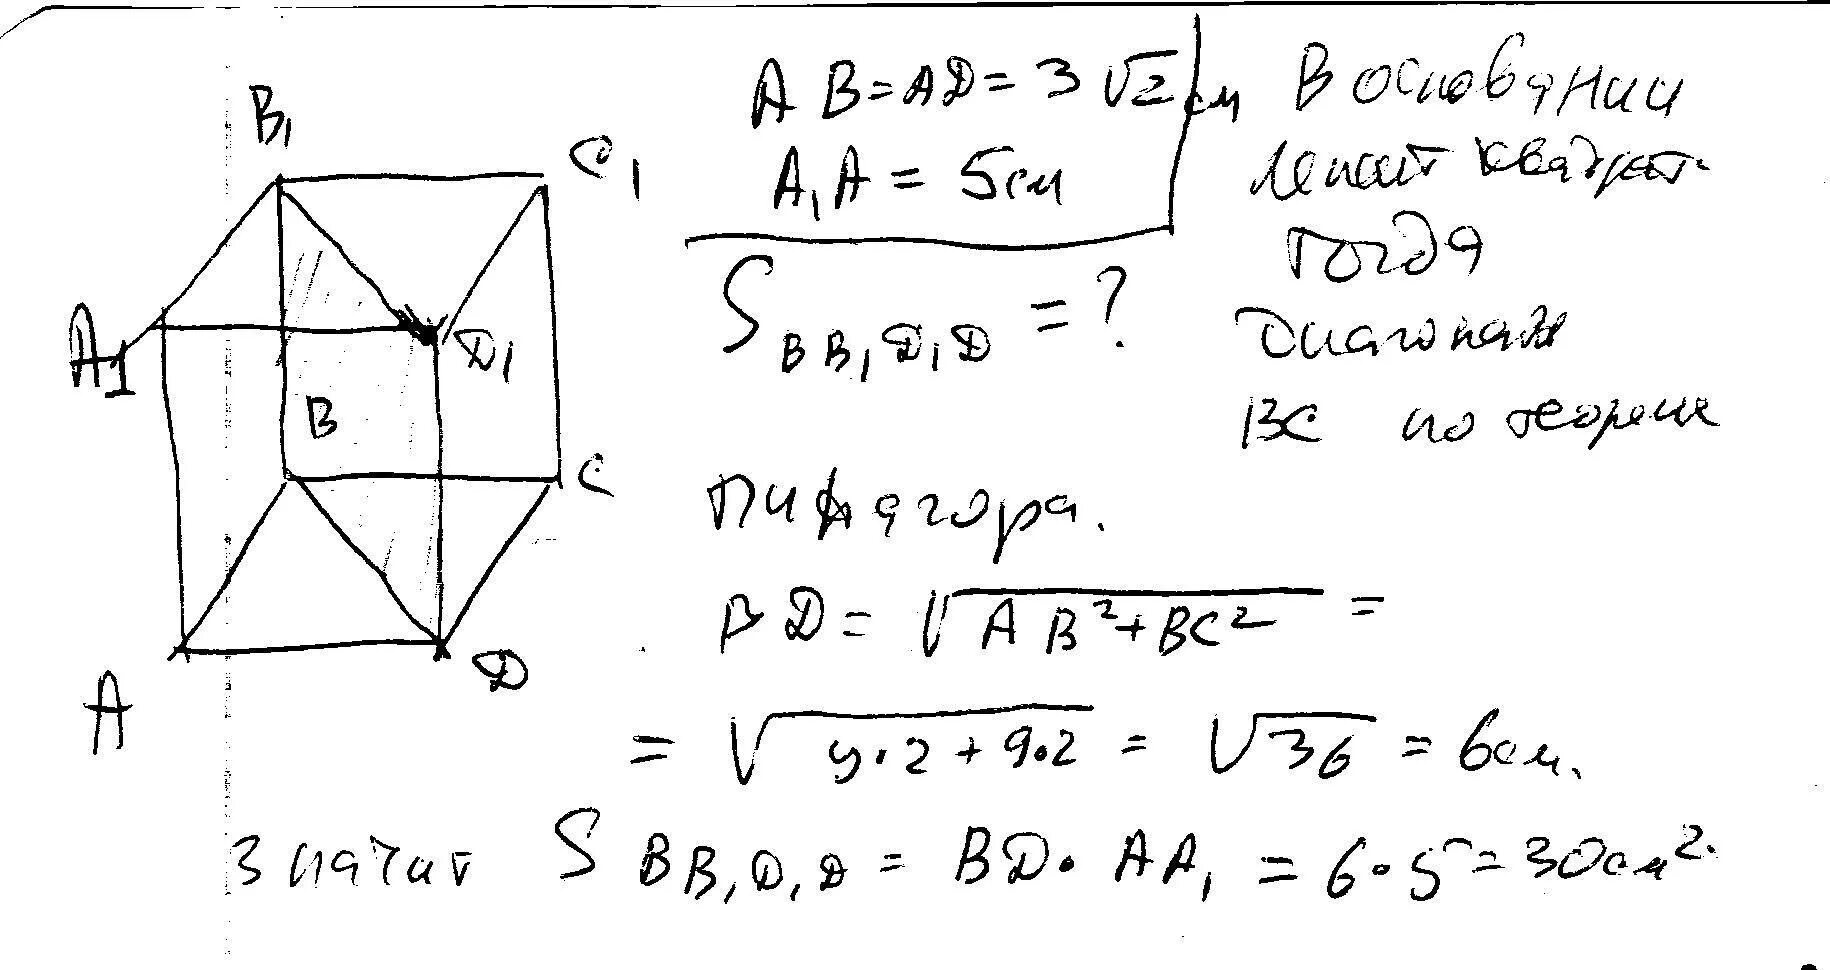 B₁
C₁
A₁
D₁
B
C
A
D
AB = AD = 3√2 см
A₁A = 5см
S BB₁D₁D = ?
В основании
лежит квадрат
тогда
диагональ
BC по теореме
Пифагора.
BD = √AB²+BC² =
= √9·2+9·2 = √36 = 6см.
Значит S BB₁D₁D = BD·AA₁ = 6·5=30см².